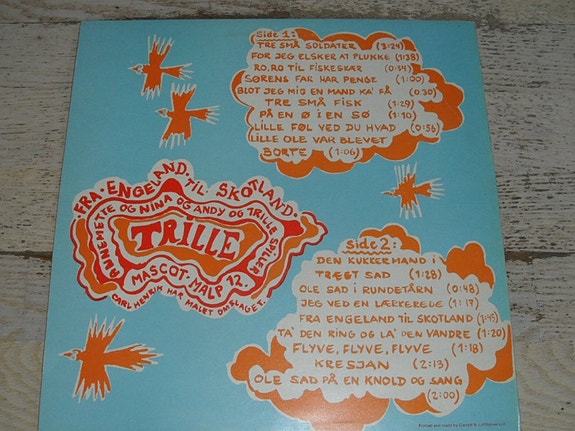 Side 1:
TRE SMÅ SOLDATER (3:24)
FOR JEG ELSKER AT PLUKKE (1:38)
RO, RO TIL FISKESKÆR (0:54)
SØRENS FAR HAR PENGE (1:00)
BLOT JEG MIG EN MAND KA' FÅ (0:30)
TRE SMÅ FISK (1:29)
PÅ EN Ø I EN SØ (1:10)
LILLE FØL VED DU HVAD (0:56)
LILLE OLE VAR BLEVET
BORTE (1:06)
FRA · ENGELAND · TIL · SKOTLAND ·
ANNEMETTE OG NINA OG ANDY OG TRILLE SPILLER
TRILLE
MASCOT · MALP 12.
CARL HENRIK HAR MALET OMSLAGET.
side 2:
DEN KUKKEMAND I
TRÆET SAD (1:28)
OLE SAD I RUNDETÅRN (0:48)
JEG VED EN LÆRKEREDE (1:17)
FRA ENGELAND TIL SKOTLAND (1:45)
TA' DEN RING OG LA' DEN VANDRE (1:20)
FLYVE, FLYVE, FLYVE (1:18)
KRESJAN (2:13)
OLE SAD PÅ EN KNOLD OG SANG
(2:00)